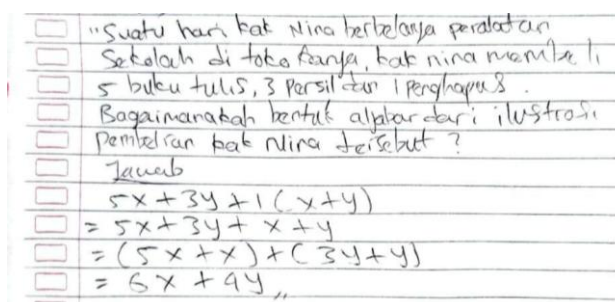 "Suatu hari kak Nina berbelanja peralatan
Sekolah di toko Karya, kak nina membeli
5 buku tulis, 3 Pensil dan 1 Penghapus.
Bagaimanakah bentuk aljabar dari ilustrasi
Pembelian kak Nina tersebut ?
Jawab
5x + 3y + 1 (x+y)
= 5x + 3y + x + y
= (5x + x) + (3y + y)
= 6x + 4y ,,